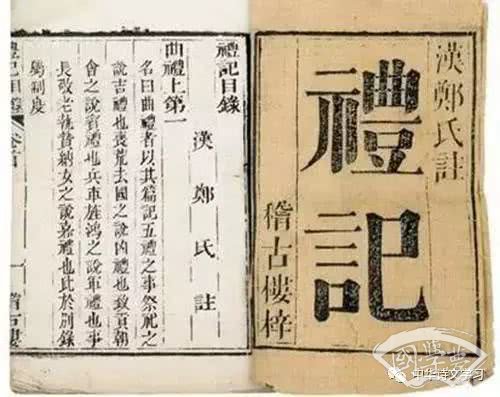 漢鄭氏註
禮記
稽古樓梓
禮記目錄
漢鄭氏註
曲禮上第一
名曰曲禮者以其篇記五禮之事祭祀之
說吉禮也喪荒去國之說凶禮也致貢朝
會之說賓禮也兵車旌鴻之說軍禮也事
長敬老執贄納女之說嘉禮也此於別錄
屬制度
禮記目錄
一
稽古樓
國學夢
中华诗文学习